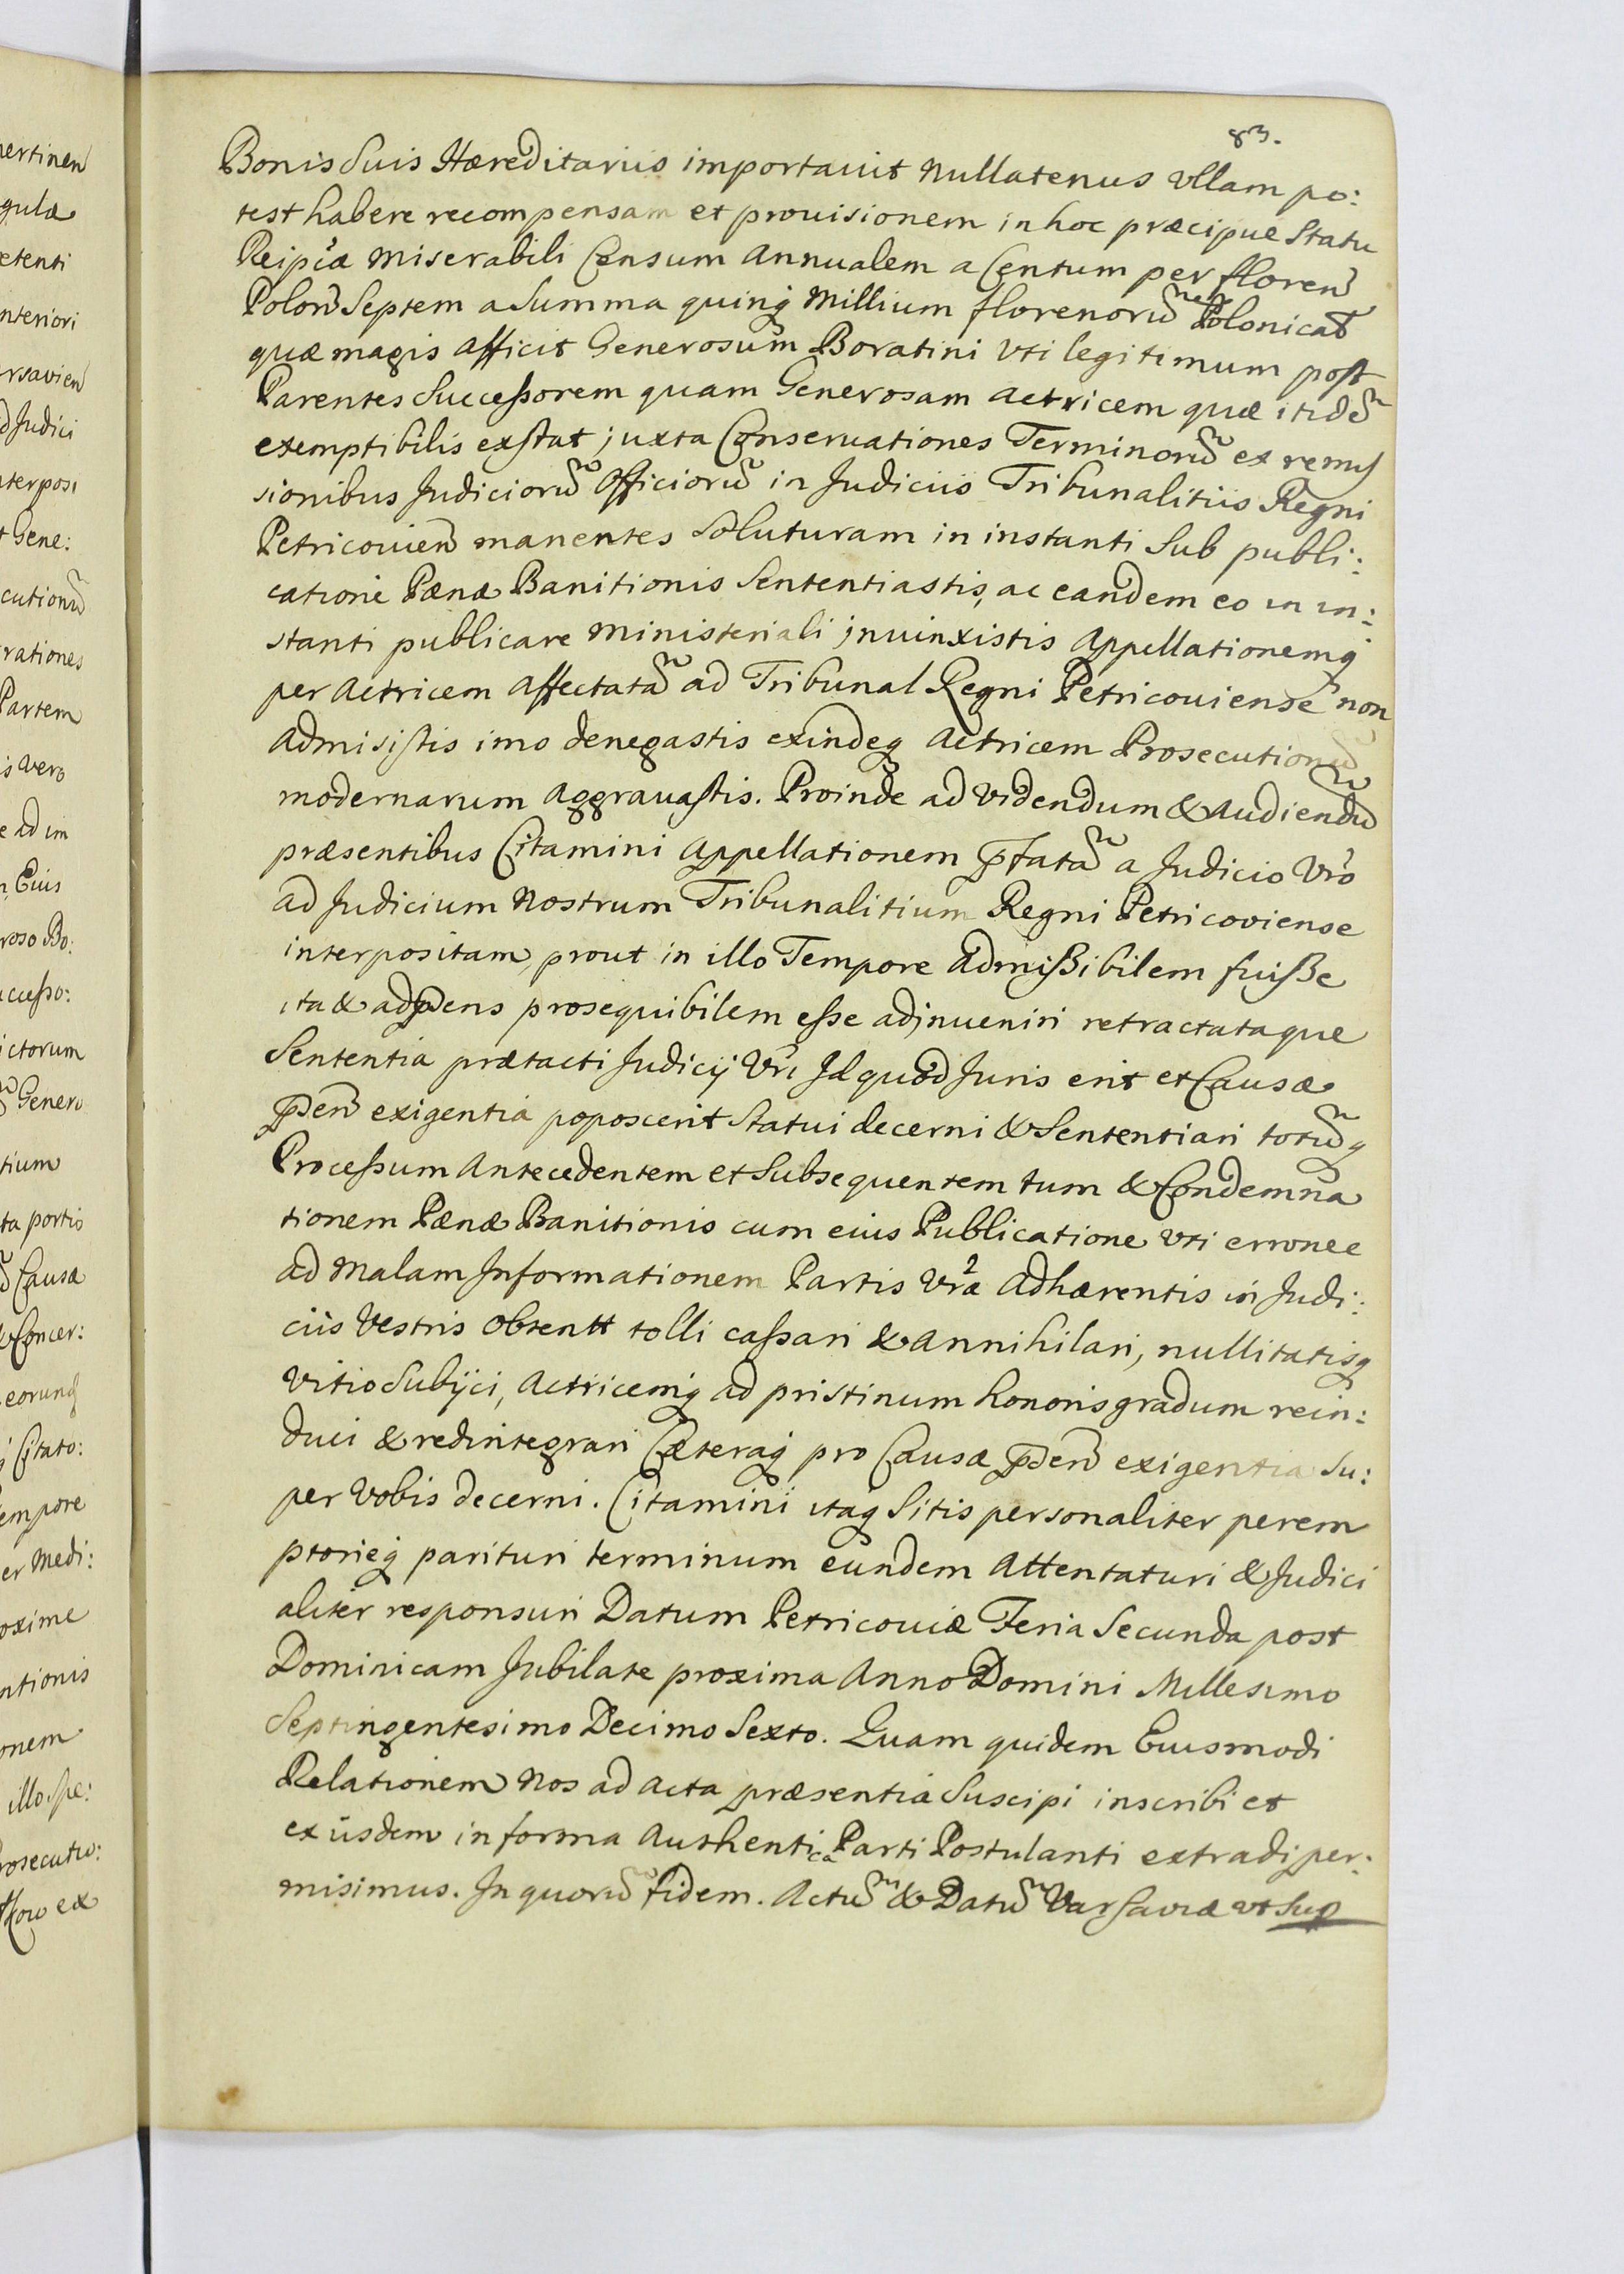 83.
Bonis Suis Hæreditariis importauit nullatenus vllam po:
test habere recompensam et prouisionem in hoc præcipue Statu
Reip̃cæ miserabili Censum Annualem a Centum per floren̄
Polon̄ Septem a Summa quinq̨ Millium florenorū Polonicał
quæ magis afficit Generosum Boratini vti legitimum post
Parentes Successorem quam Generosam Actricem quæ itidē
exemptibilis exstat juxta Conseruationes Terminorū ex remis
sionibus Judiciorū Officiorū in Judiciis Tribunalitiis Regni
Petricouien̄ manentes Soluturam in instanti Sub publi:
catione Pænæ Banitionis Sententiastis, ac eandem eo in in:
stanti publicare Ministeriali injuinxistis Appellationemq̨
per Actricem Affectatā ad Tribunal Regni Petricouiense non
Admisistis imo denegastis exindeq̨ Actricem Prosecutionū
modernarum Aggrauastis. Proinde ad Videndum & Audiendū
præsentibus Citamini Appellationem p̄fatā a Judicio Vr̃o
ad Judicium Nostrum Tribunalitium Regni Petricoviense
interpositam, prout in illo Tempore Admißibilem fuiße
ita & ad p̄dens prosequibilem eße adjnueniri retractataque
Sententia prætacti Judicij Vr̃i Id quod Juris erit et Causæ
p̄den̄ exigentia poposcerit Statui decerni & Sententiari totūq̨
Processum Antecedentem et Subsequentem tum & Condemna
tionem Pænæ Banitionis cum eius Publicatione vti erronee
ad Malam Informationem Partis Vr̃æ Adhærentis in Judi:
ciis Vestris obtentt tolli cassari & Annihilari, nullitatisq̨
Vitio Subijci, Actricemq̨ ad pristinum honoris gradum rein:
duci & redintegrari Cæteraq̨ pro Causæ p̄den̄ exigentia Su:
per Vobis decerni. Citamini itaq̨ Sitis personaliter perem
ptorieq̨ parituri terminum eundem Attentaturi & Judici
aliter responsuri Datum Petricouiæ Feria Secunda post
Dominicam Jubilate proxima Anno Domini Millesimo
Septingentesimo Decimo Sexto. Quam quidem Eiusmodi
Relationem Nos ad Acta præsentia Suscipi inscribi et
ex iisdem in forma Authentica Parti Postulanti extradi per:
misimus. In quorū fidem. Actū & Datū Varsauiæ vt Sup